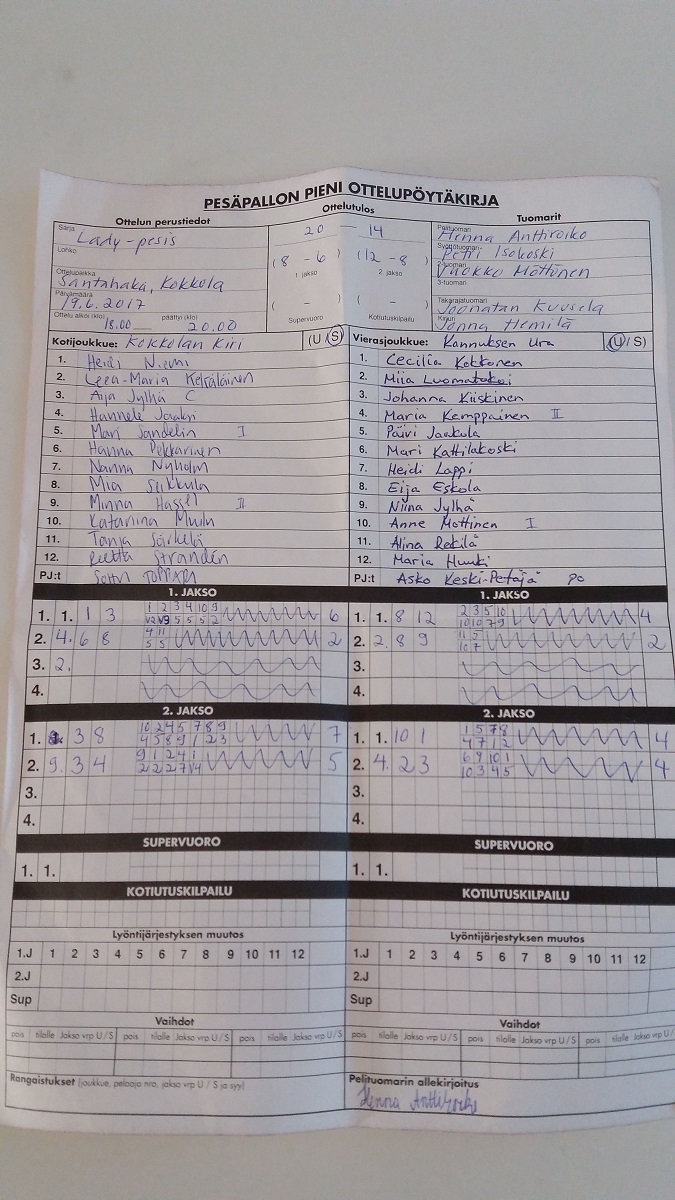 PESÄPALLON PIENI OTTELUPÖYTÄKIRJA
Ottelun perustiedot Ottelutulos Tuomarit
Sarja Lady-pesis 20 — 14 Pelituomari Henna Anttiroiko
Lohko (8 - 6) (12 - 8) Syöttötuomari Petri Isokoski
1. jakso 2. jakso 2-tuomari Vuokko Möttönen
Ottelupaikka Santahaka, Kokkola 3-tuomari
Päivämäärä 19.6.2017 ( - ) ( - ) Takarajatuomari Joonatan Kuusela
Ottelu alkoi (klo) 18.00 päättyi (klo) 20.00 Supervuoro Kotiutuskilpailu Kirjuri Jonna Hemilä
Kotijoukkue: Kokkolan Kiri (U/S) Vierasjoukkue: Kannuksen Ura (U/S)
1. Heidi Niemi 1. Cecilia Kokkonen
2. Leea-Maria 2. Miia Luomatakoi
3. Aija Jylhä C 3. Johanna Kiiskinen
4. Hannele Jaakri 4. Maria Kemppainen II
5. Mari Sandelin I 5. Päivi Jaakola
6. Hanna Pekkarinen 6. Mari Kattilakoski
7. Nanna Nyholm 7. Heidi Lappi
8. Mia Seikkula 8. Eija Eskola
9. Minna Hassel II 9. Niina Jylhä
10. Katariina 10. Anne Möttinen I
11. Tanja Särkelä 11. Alina Rekilä
12. Reetta Strandén 12. Maria Huuki
PJ:t PJ:t Asko Keski-Petäjä po
1. JAKSO 1. JAKSO
1. 1. 1 3 1 2 3 4 10 9 6 1. 1. 8 12 2 3 5 10 4
V2 V9 5 5 5 2 10 10 7 9
2. 4. 6 8 4 11 2 2. 2. 8 9 11 5 2
5 5 10 7
3. 2. 3.
4. 4.
2. JAKSO 2. JAKSO
1. 3 8 10 2 4 5 7 8 9 7 1. 1. 10 1 1 5 7 8 4
4 5 8 9 1 2 3 4 7 1 2
2. 9. 3 4 9 1 2 4 1 5 2. 4. 2 3 6 9 10 1 4
2 2 2 7 V4 10 3 4 5
3. 3.
4. 4.
SUPERVUORO SUPERVUORO
1. 1. 1. 1.
KOTIUTUSKILPAILU KOTIUTUSKILPAILU
Lyöntijärjestyksen muutos Lyöntijärjestyksen muutos
1.J 1 2 3 4 5 6 7 8 9 10 11 12 1.J 1 2 3 4 5 6 7 8 9 10 11 12
2.J 2.J
Sup Sup
Vaihdot Vaihdot
pois tilalle Jakso vrp U/S pois tilalle Jakso vrp U/S pois tilalle Jakso vrp U/S pois tilalle Jakso vrp U/S pois tilalle Jakso vrp U/S pois tilalle Jakso vrp U/
Rangaistukset (joukkue, pelaaja nro, jakso vrp U / S ja syy) Pelituomarin allekirjoitus
Henna Anttiroiko